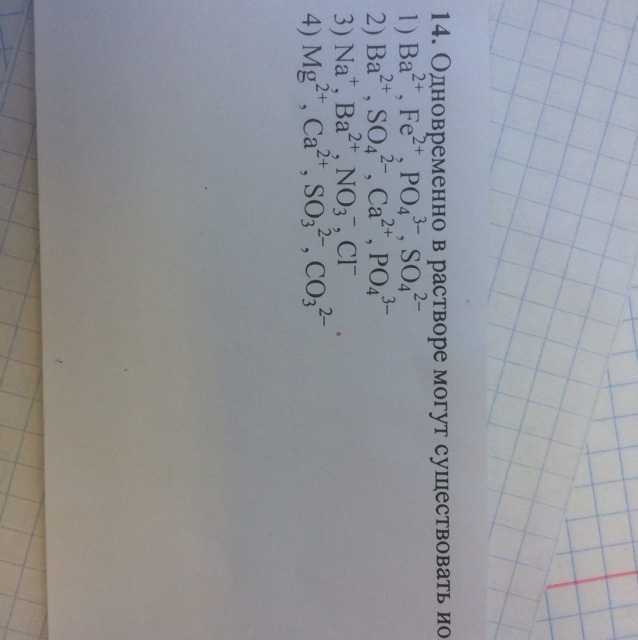 14. Одновременно в растворе могут существовать ио
1) Ba²⁺, Fe²⁺, PO₄³⁻, SO₄²⁻
2) Ba²⁺, SO₄²⁻, Ca²⁺, PO₄³⁻
3) Na⁺, Ba²⁺, NO₃⁻, Cl⁻
4) Mg²⁺, Ca²⁺, SO₃²⁻, CO₃²⁻